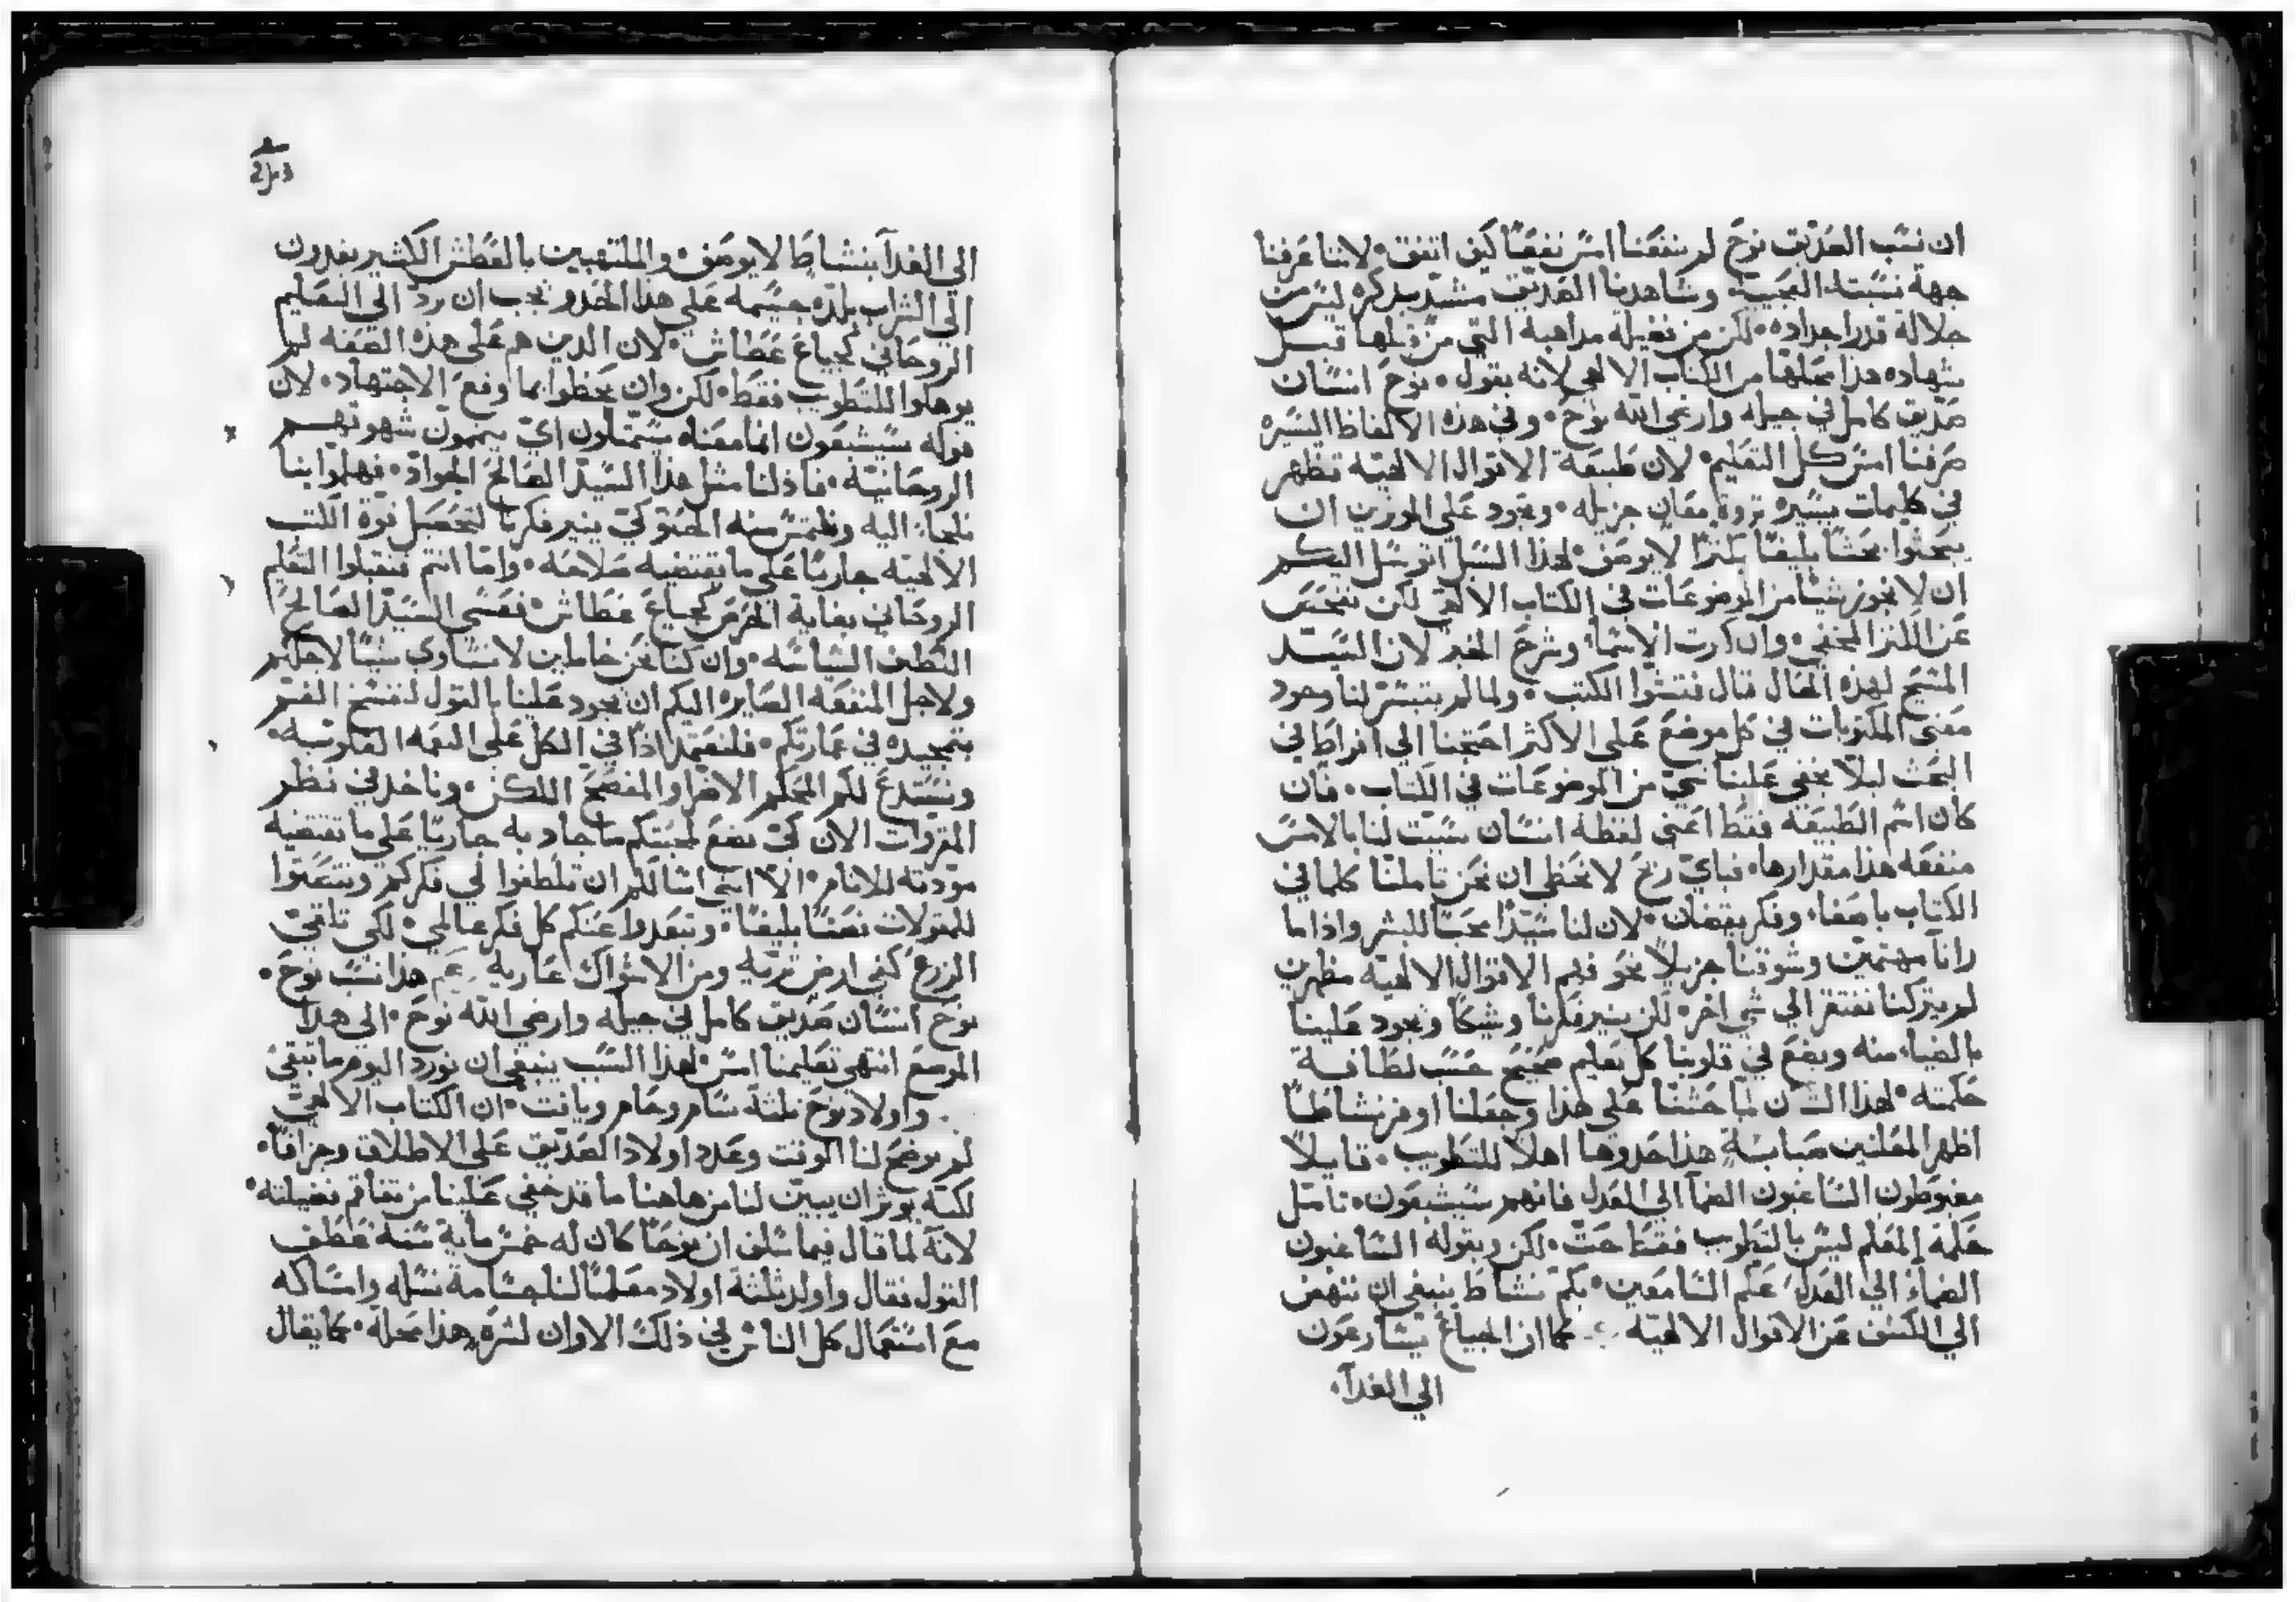 ان نسب الصديق نوح لم ينفعنا امس نفعًا كيف اتفق٠ لاننا عرفنا
جهة نسبته العجيبة٠ وشاهدنا الصديق مشيد بذكره ليس من
جلالة قدر اجداده٠ لكن من فضيلة مذاهبه التي من قبلها قبل
شهاده هذا محلها من الكتاب الالهي لانه يقول٠ نوح انسان
صديق كامل في جيله وارضي الله نوح٠ وفي هذه الالفاظ اليسيره
صرفنا امس كل التعليم٠ لان طبيعة الاقوال الالهيه تظهر
في كليمات يسيره ثروة معانٍ جزيله٠ وتجود على الموثرين ان
يبحثوا بحثًا بليغًا كنزًا لا يوصف٠ لهذا السبل اتوسل اليكم
ان لا نجوز شيًا من الموضوعات في الكتاب الالهي لكن نتفحص
عن الكنز المخفي٠ وان كررت الاسما٠ وشرح الخبر لان السيد
المسيح لهذه الحال قال فتشوا الكتب٠ ولما لم يتيسر لنا وجود
معنى المكتوبات في كل موضع على الاكثر احتجنا الي افراط في
البحث ليلا يخفي علينا شي من الموضوعات في الكتاب٠ فان
كان اسم الطبيعه فقط اعني لفظة انسان سببت لنا بالامس
منفعه هذا مقدارها٠ فباي ربح لا نحظى ان نحن تاملنا كلما في
الكتاب باصغا٠ وفكر يقضان٠ لان لنا سيدًا محبًا للبشر واذا ما
رانا مهتمين وشوقنا جزيلاً نحو فهم الاقوال الالهيه مظهرين
لم يتركنا نفتقر الي شي اخر٠ لكن ينير فكرنا وشيكًا ويجود علينا
بالضيا٠ منه ويضع في قلوبنا كل تعليم صحيح حسب لطافة
حكمته٠ لهذا الشان لما حثنا على هذا وجعلنا اوفر نشاطًا
اظهر المعلنين صبابةٍ هذا حدوها اهلاً للتطويب٠ قايلاً
مغبوطون الساغبون الضما الي العدل فانهم سيشبعون٠ تامل
حكمة المعلم ليس بالتطويب فقط حث٠ لكن وبقوله الساغبون
الضماء الي العدل٠ علم السامعين٠ بكم نشاط ينبغي ان ننهض
الي الكشف عن الاقوال الالهيه ٠ كما ان الجياع يتسارعون
الي الغدآ٠
الي الغدآ بنشاط لا يوصف٠ والملتهبين بالعطش الكثير يغدون
الي الشراب بلذه جسيمه على هذا الحذو يجب ان نرد الي التعليم
الروحاني كجياع عطاش٠ لان الذين هم على هذه الصفه لم
يوهلوا للتطويب فقط٠ لكن وان يحظوا بما وقع الاجتهاد٠ لان
قوله سيشبعون انما معناه سيمتلون اي يتممون شهوتهم
الروحانيه٠ فاذ لنا مثل هذا السيد الصالح الجواد٠ فهلموا بنا
نلجا٠ اليه ونلتمس منه الحنو كي ينير فكرنا لنحصل قوة الكتب
الالهيه جاريًا على ما تقتضيه صلاحه٠ واما انتم فتقبلوا التعليم
الروحاني بغاية الحرص كجياع عطاش٠ فعسى السيد الصالح
اللطيف السياسه٠ وان كنا نحن خاملين لا نساوي شيًا لاجلكم
ولاجل المنفعه الصايره اليكم ان يجود علينا بالقول لنفتح الفم
بتمجيده في عمارتكم٠ فلنعتمد اذًا في الكل على النعمه العلويه٠
ونستدع لكم المحكم الاخرا والمفصح اللكن٠ وناخذ في نظر
المقروات الان كي نضع لمحبتكم ما جاد به جاريًا على ما تقتضيه
مودته للانام٠ الا انني اسالكم ان تلطفوا لي فكركم وتتعتوا
للمقولات نصتًا بليغًا٠ وتبعدوا عنكم كل فكر عالمي٠ لكي نلقي
الزرع كفي ارض ثريه ومن الاشواك عاريه ٠ هذا نسب نوح٠
نوح انسان صديق كامل في جيله وارضي الله نوح٠ الى هذا
الموضع انتهى تعليمنا امس٠ لهذا السبب ينبغي ان نورد اليوم ما تبقى
٠ واولاد نوح ثلثة سام وحام ويافت٠ ان الكتاب الالهي
لم يوضح لنا الوقت وعدد اولاد الصديق على الاطلاق وجزافًا٠
لكنه يوثر ان يبين لنا من هاهنا ما قد خفي علينا من تفاقم فضيلته٠
لانه لما قال فيما سلف ان نوحًا كان له خمس ماية سنة عطف
القول فقال واولد ثلثة اولاد معلمًا لنا جسامة نسله وامساكه
مع استعمال كل الناس في ذلك الاوان لشرهٍ هذا محله٠ كما يقال